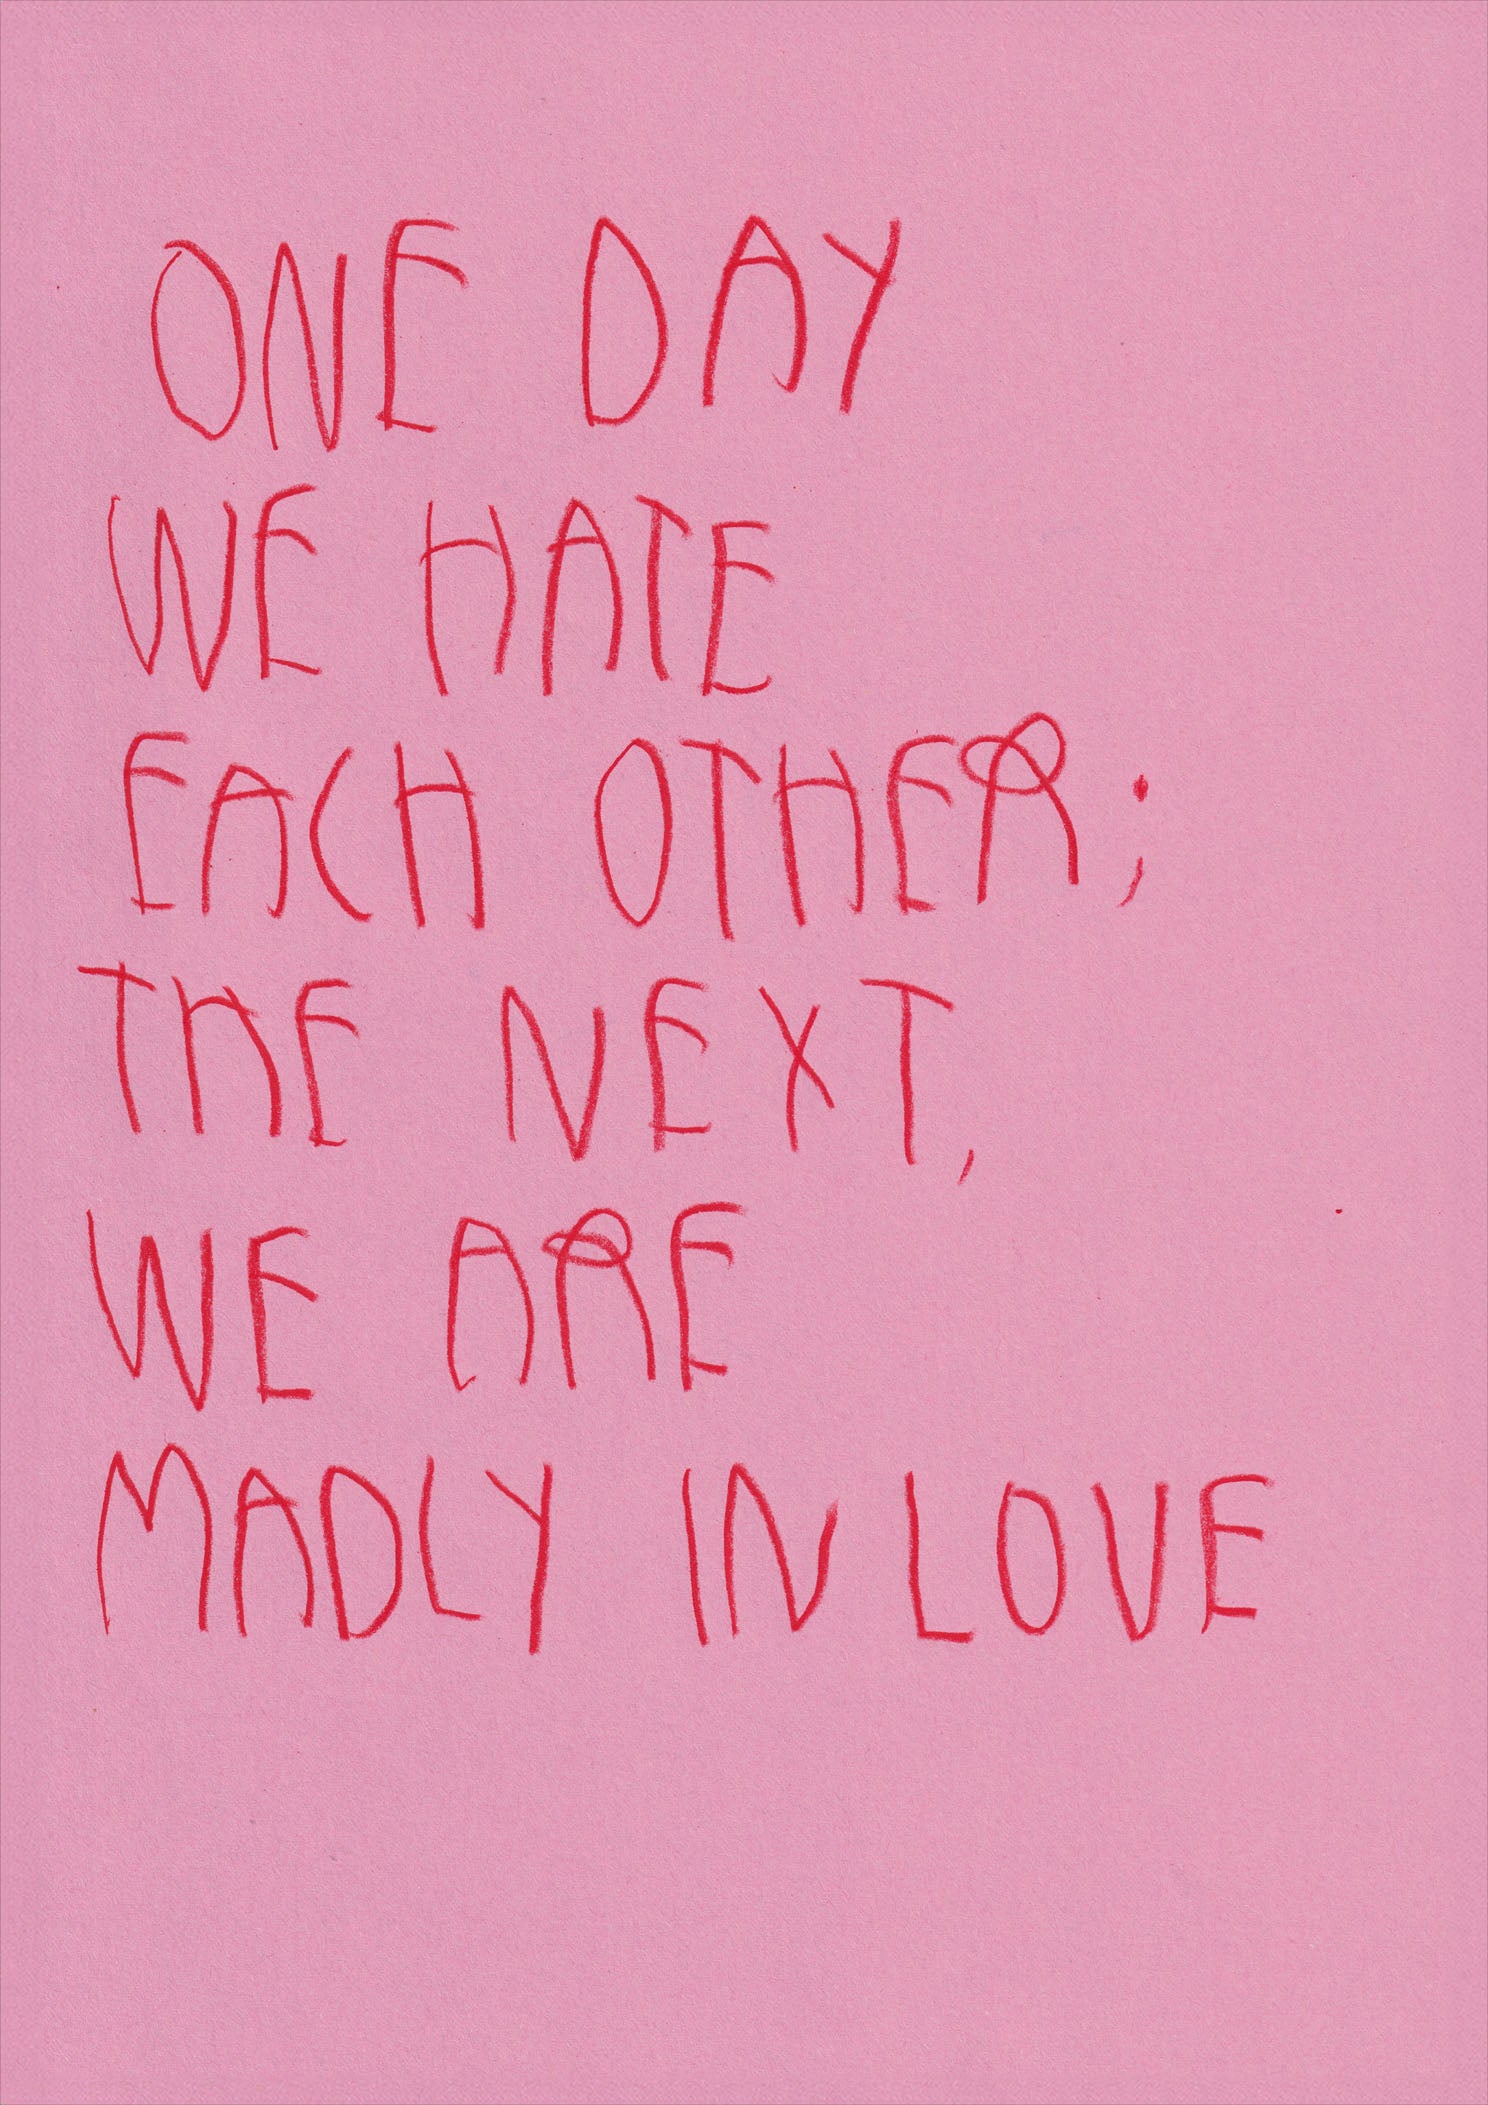 ONE DAY
WE HATE
EACH OTHER;
THE NEXT,
WE ARE
MADLY IN LOVE